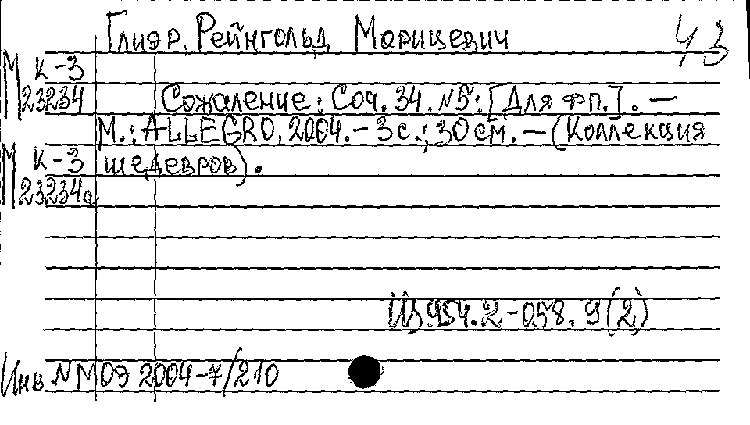 Глиэр, Рейнгольд Морицевич 43
М К-3
23234 Сожаление: Соч. 34. №5: [Для фп.]. —
М.: ALLEGRO, 2004. – 3 с.; 30 см. — (Коллекция
М К-3 шедевров).
23234а
Щ954.2-058.9(2)
Инв №МОЭ 2004-7/210